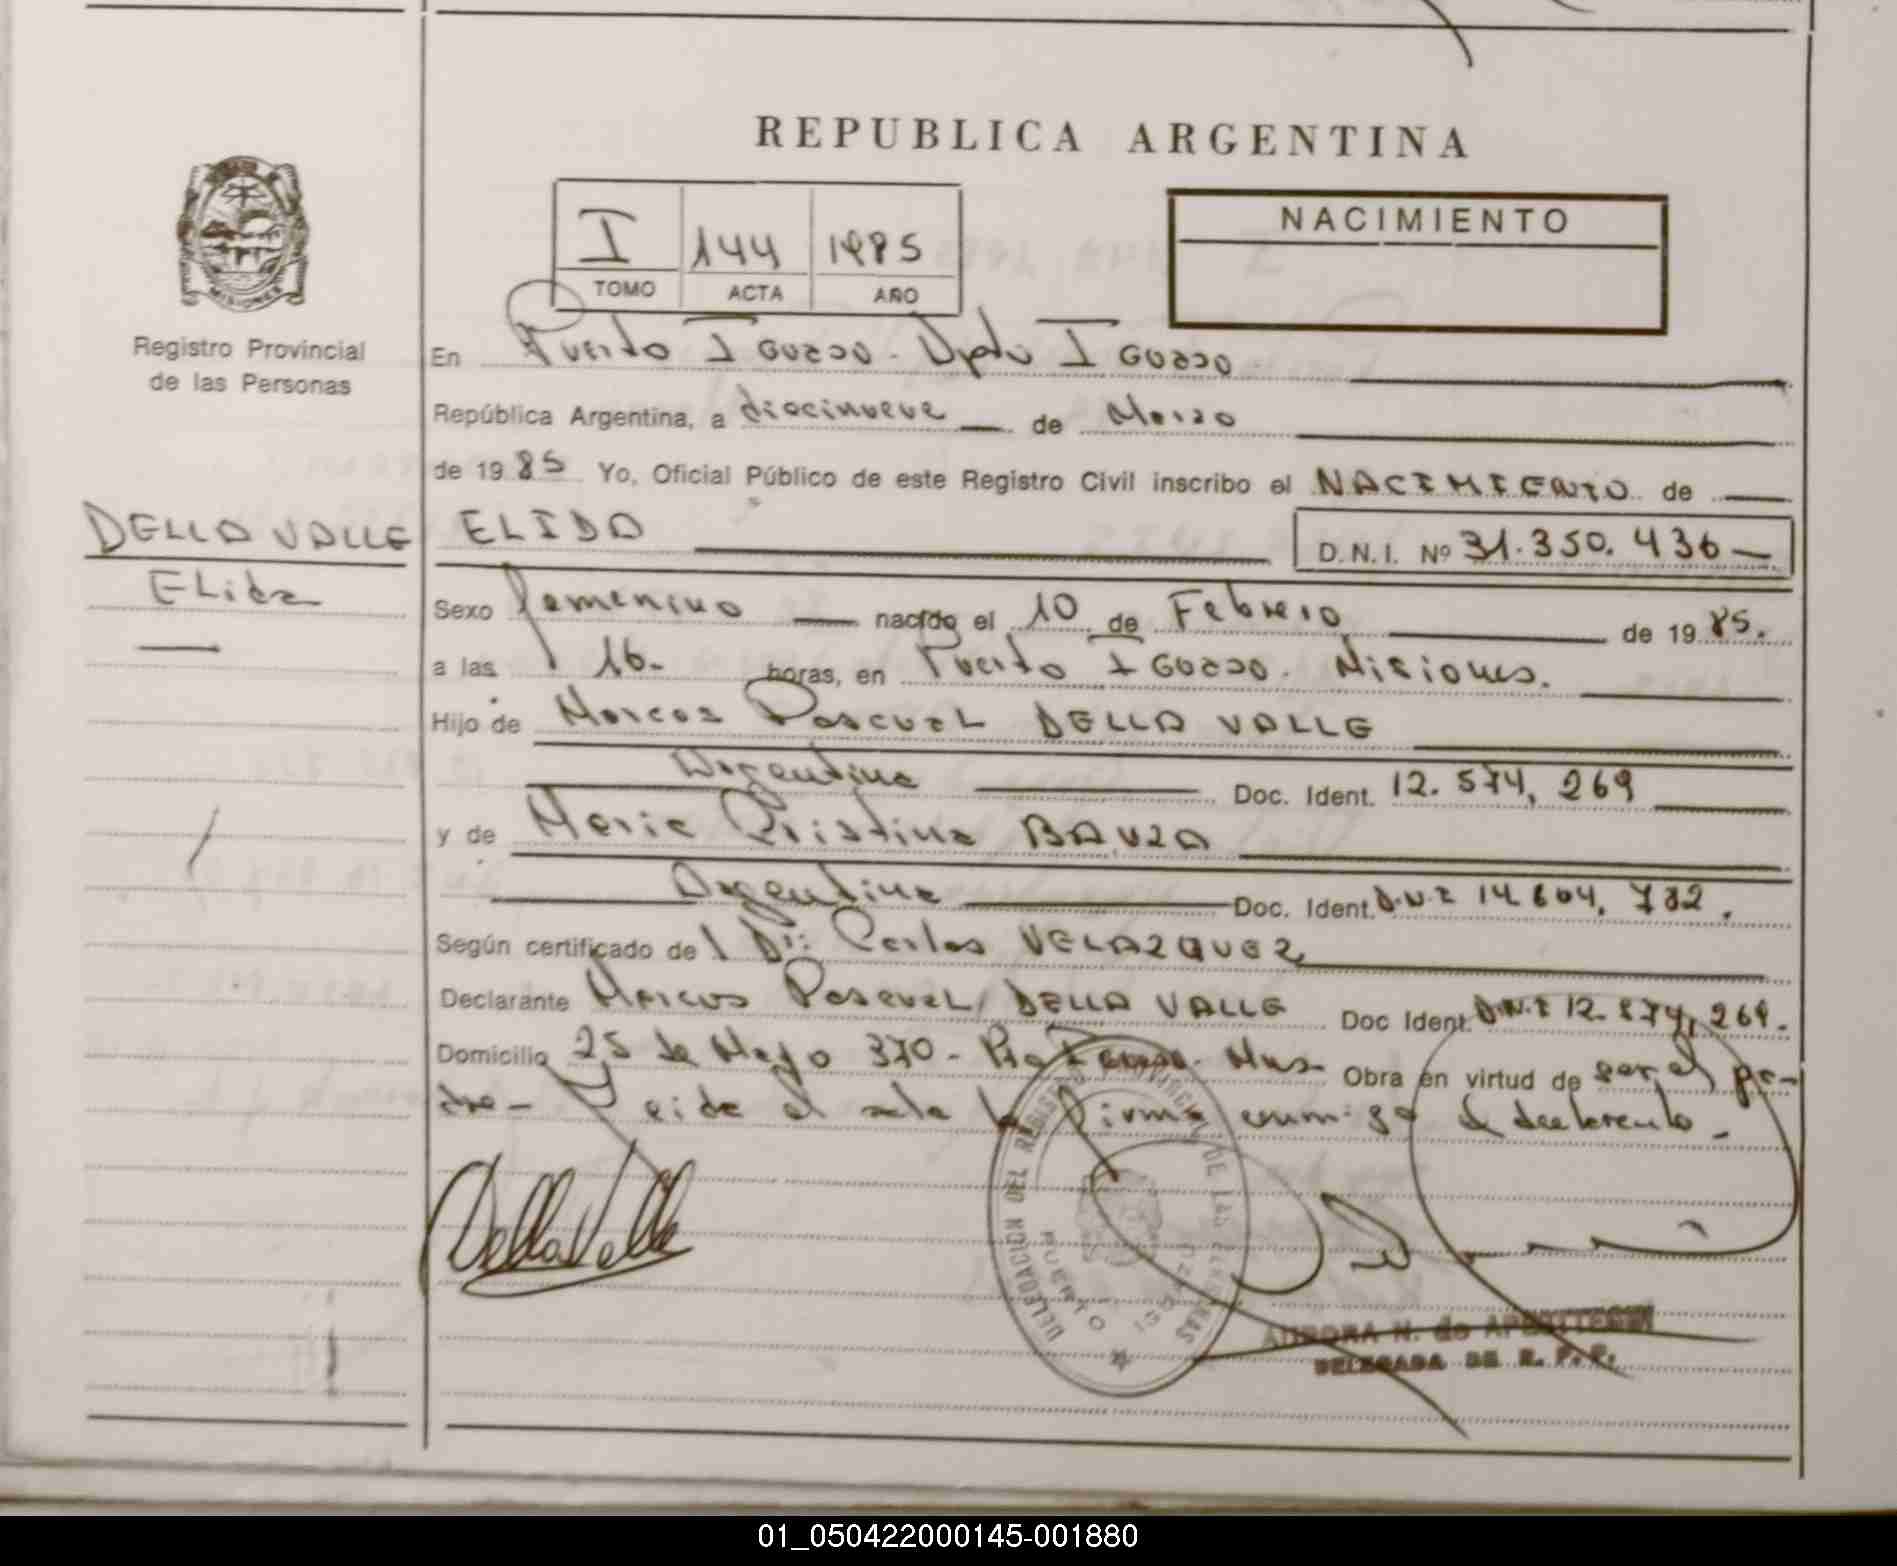 REPUBLICA ARGENTINA
MISIONES
Registro Provincial
de las Personas
I 144 1985
TOMO ACTA AÑO
NACIMIENTO
En Puerto Iguazo - Dpto Iguazo
República Argentina, a diecinueve de Marzo
de 1985 Yo, Oficial Público de este Registro Civil inscribo el NACIMIENTO de
DELLA VALLE
Elida
ELIDA D.N.I. Nº 31.350.436
Sexo femenino nacido el 10 de Febrero de 1985.
a las 16. horas, en Puerto Iguazo. Misiones.
Hijo de Marcos Pascual DELLA VALLE
Argentina Doc. Ident. 12.574,269
y de Maria Cristina BAUZA
Argentina Doc. Ident. D.N.I 14.604,782.
Según certificado de Dr: Carlos VELAZQUEZ
Declarante Marcos Pascual DELLA VALLE Doc Ident. D.N.I 12.574,269.
Domicilio 25 de Mayo 370 - Obra en virtud de ser el pa-
dre - el acta la firma conmigo el declarante -
Della Valle
DELEGACION DEL REGISTRO PROVINCIAL DE LAS PERSONAS
PUERTO
AURORA N. de
DELEGADA DE R. P. P.
01_050422000145-001880